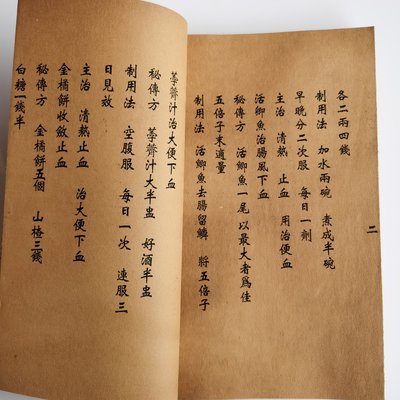 二
各二兩四錢
制用法 加水兩碗 煮成半碗
早晚分二次服 每日一劑
主治 清熱 止血 用治便血
活鯽魚治腸風下血
秘傳方 活鯽魚一尾 以最大者為佳
五倍子末適量
制用法 活鯽魚去腸留鱗 將五倍子
荸薺汁治大便下血
秘傳方 荸薺汁大半盅 好酒半盅
制用法 空腹服 每日一次 連服三
日見效
主治 清熱止血 治大便下血
金橘餅收斂止血
秘傳方 金橘餅五個 山楂三錢
白糖一錢半